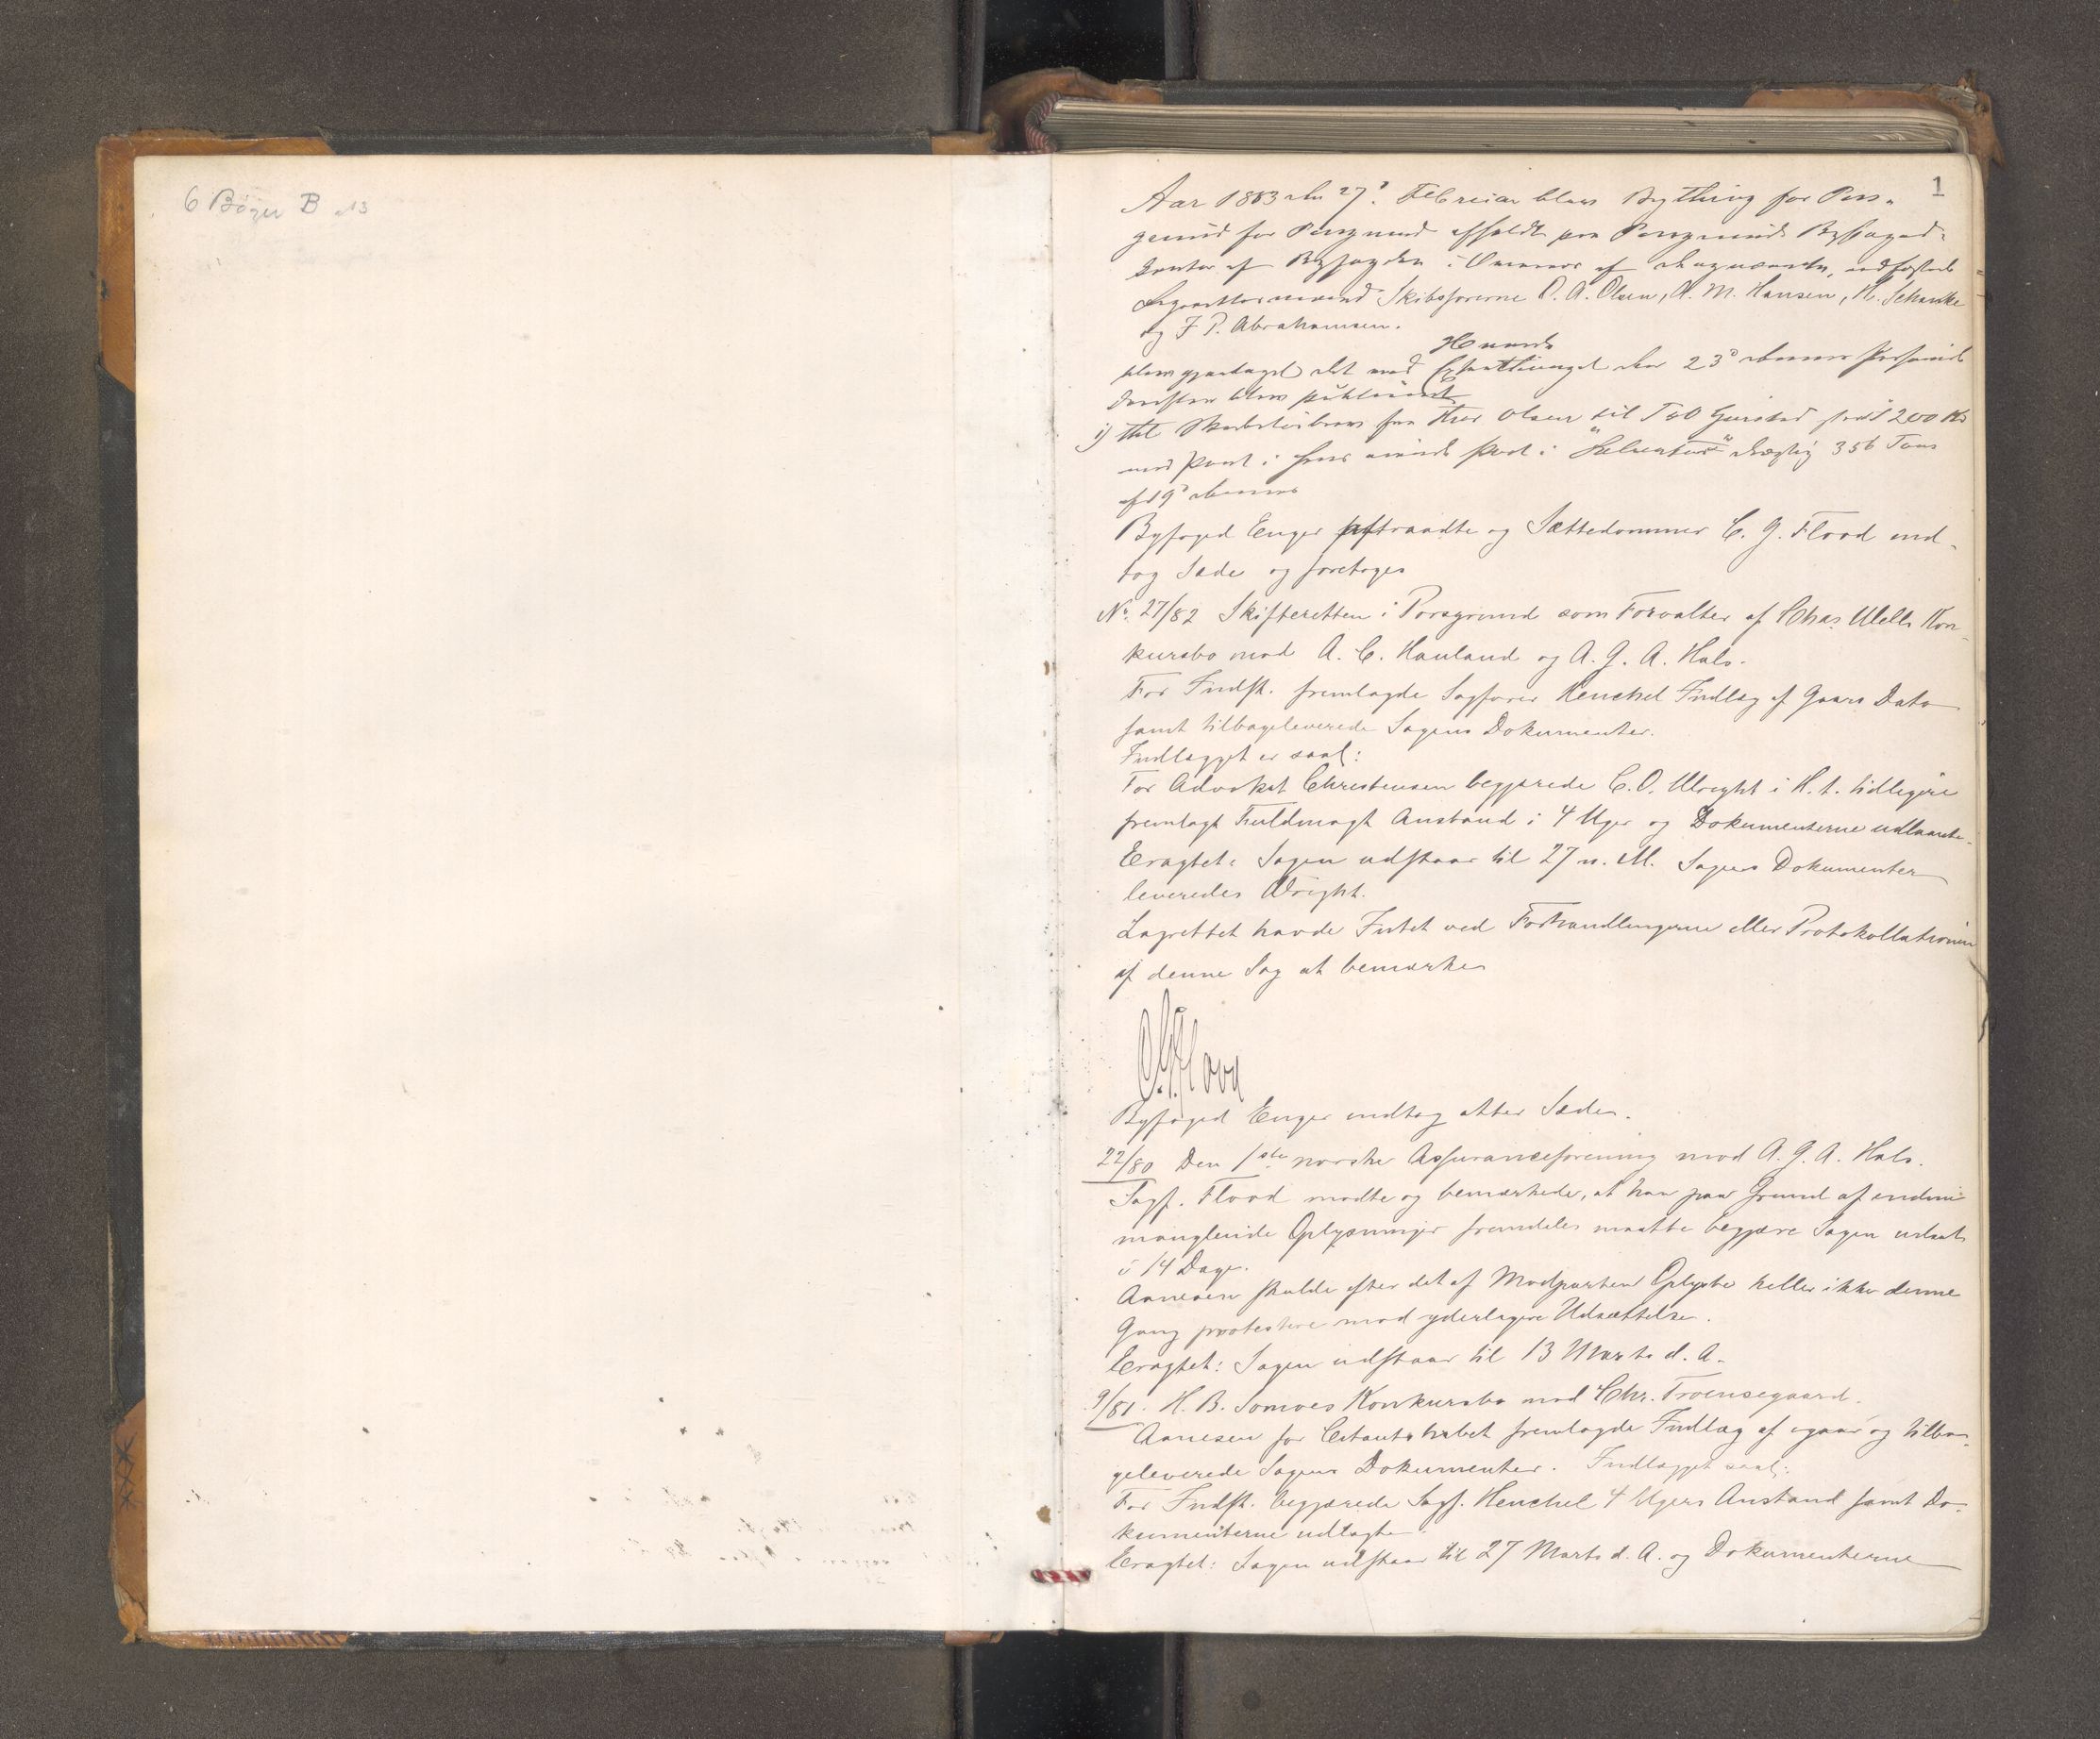 6 Bøger B
1
Aar 1883 den 27de Februar blev Bything for Pors-
grund for Porsgrund afholdt paa Porsgrunds Byfoged-
kontor af Byfogden i Overvær af edfæstede
Lagrettesmænd Skibsførerne O. A. Olsen, A. M. Hansen, H. Schanke
og J P. Abrahamsen.
blev den 23de
derefter blev publiceret
1) fra Olsen til 200 Kr
med Pant i hans Part i drægtig 356 Tons
af 19de dennes
Byfoged Enger aftraadte og Sættedommer C. G. Flood ind-
tog Sæde og foretoges
No. 27/82 Skifteretten i Porsgrund som Forvalter af Chas Wells Kon-
kursbo mod A. C. Hauland og A. G. A. Hals.
For Indst. fremlagde Sagfører Henchel Indlæg af Gaars Dato
samt tilbageleverede Sagens Dokumenter.
Indlægget er saal:
For Advokat Christensen begjærede C. O. Wright i H. t. tidligere
fremlagt Fuldmagt Anstand i 4 Uger og Dokumenterne udlaante.
Eragtet: Sagen udstaar til 27 n. M. Sagens Dokumenter
leveredes Wright.
Lagrettet havde Intet ved Forhandlingerne eller Protokollationen
af denne Sag at bemærke
C. G. Flood
Byfoged Enger indtog atter Sædet.
22/80 Den 1ste norske Assuranceforening mod A. G. A. Hals.
Sagf. Flood mødte og bemærkede, at han paa Grund af endnu
manglende Oplysninger fremdeles maatte begjære Sagen udsat
i 14 Dage.
Aanesen skulde efter det af Modparten Oplyste heller ikke denne
Gang protestere mod yderligere Udsættelse.
Eragtet: Sagen udstaar til 13 Marts d. A.
9/81. H. B. Somoes Konkursbo mod Chr. Troensegaard.
Aanesen for Citantskabet fremlagde Indlæg af igaar og tilba-
geleverede Sagens Dokumenter. Indlægget saal:
For Indst. begjærede Sagf. Henchel 4 Ugers Anstand samt Do-
kumenterne udlagte.
Eragtet: Sagen udstaar til 27 Marts d. A. og Dokumenterne